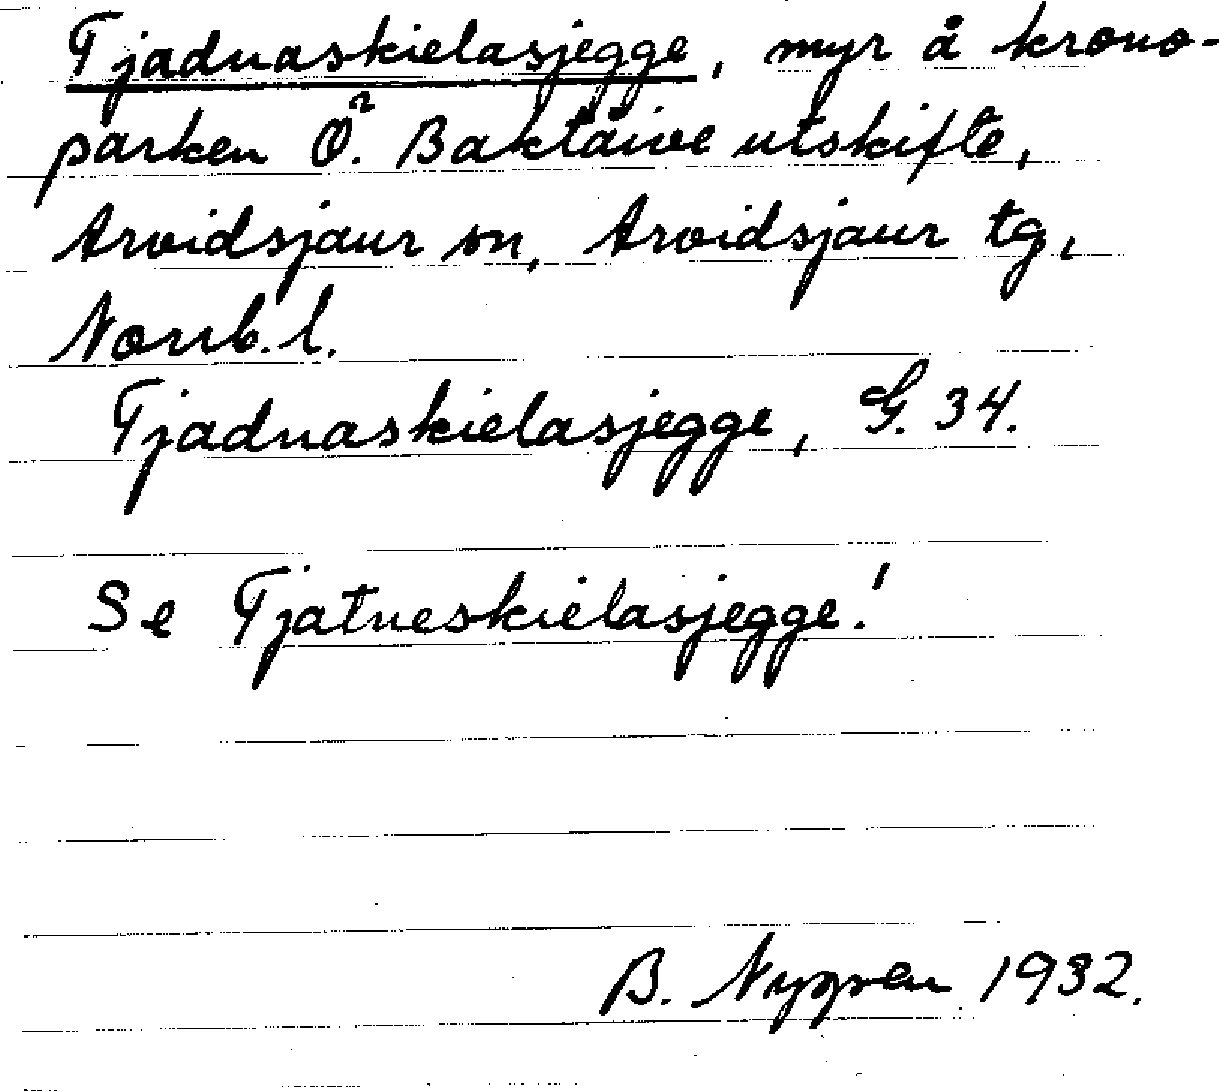 Tjadnaskielasjegge, myr å krono-
parken Ö. Baktåive utskifte,
Arvidsjaur sn, Arvidsjaur tg,
Norrb. l.
Tjadnaskielasjegge, G. 34.
Se Tjatneskielasjegge!
B. 1932.